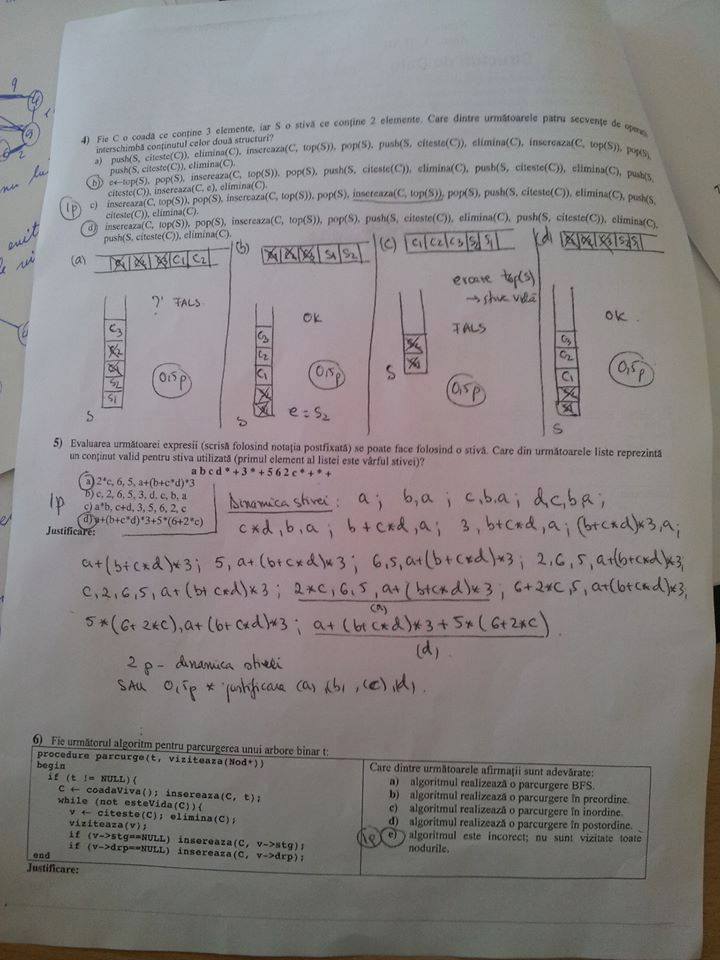 4) Fie C o coadă ce conține 3 elemente, iar S o stivă ce conține 2 elemente. Care dintre următoarele patru secvențe de operații
interschimbă conținutul celor două structuri?
a) push(S, citeste(C)), elimina(C), insereaza(C, top(S)), pop(S), push(S, citeste(C)), elimina(C), insereaza(C, top(S)), pop(S),
push(S, citeste(C)), elimina(C).
b) e←top(S), pop(S), insereaza(C, top(S)), pop(S), push(S, citeste(C)), elimina(C), push(S, citeste(C)), elimina(C), push(S,
citeste(C)), insereaza(C, e), elimina(C).
1p
c) insereaza(C, top(S)), pop(S), insereaza(C, top(S)), pop(S), insereaza(C, top(S)), pop(S), push(S, citeste(C)), elimina(C), push(S,
citeste(C)), elimina(C).
d) insereaza(C, top(S)), pop(S), insereaza(C, top(S)), pop(S), push(S, citeste(C)), elimina(C), push(S, citeste(C)), elimina(C),
push(S, citeste(C)), elimina(C).
(a) C1 C2
(b) S1 S2
(c) C1 C2 C3 S2 S1
(d) S2 S1
eroare top(S)
→ stiva vidă
? FALS
OK
FALS
OK
C3
S2
S1
C3
C2
C1
C3
C2
C1
0,5p
0,5p
0,5p
0,5p
S
S
e = S2
S
S
5) Evaluarea următoarei expresii (scrisă folosind notația postfixată) se poate face folosind o stivă. Care din următoarele liste reprezintă
un conținut valid pentru stiva utilizată (primul element al listei este vârful stivei)?
a b c d * + 3 * + 5 6 2 c * + * +
a) 2*c, 6, 5, a+(b+c*d)*3
b) c, 2, 6, 5, 3, d, c, b, a
c) a*b, c+d, 3, 5, 6, 2, c
d) a+(b+c*d)*3+5*(6+2*c)
1p
Justificare:
Dinamica stivei: a; b,a; c,b,a; d,c,b,a;
c*d, b, a; b+c*d, a; 3, b+c*d, a; (b+c*d)*3, a;
a+(b+c*d)*3; 5, a+(b+c*d)*3; 6,5, a+(b+c*d)*3; 2,6,5, a+(b+c*d)*3;
C,2,6,5, a+(b+c*d)*3; 2*c,6,5, a+(b+c*d)*3; 6+2*c,5, a+(b+c*d)*3,
(a)
5*(6+2*c), a+(b+c*d)*3; a+(b+c*d)*3+5*(6+2*c).
(d)
2p - dinamica stivei
SAU 0,5p * justificare (a), (b), (c), (d).
6) Fie următorul algoritm pentru parcurgerea unui arbore binar t:
procedure parcurge(t, viziteaza(Nod*))
begin
if (t != NULL){
C ← coadaViva(); insereaza(C, t);
while (not esteVida(C)){
v ← citeste(C); elimina(C);
viziteaza(v);
if (v->stg==NULL) insereaza(C, v->stg);
if (v->drp==NULL) insereaza(C, v->drp);
end
Care dintre următoarele afirmații sunt adevărate:
a) algoritmul realizează o parcurgere BFS.
b) algoritmul realizează o parcurgere în preordine.
c) algoritmul realizează o parcurgere în inordine.
d) algoritmul realizează o parcurgere în postordine.
1p e) algoritmul este incorect; nu sunt vizitate toate
nodurile.
Justificare: